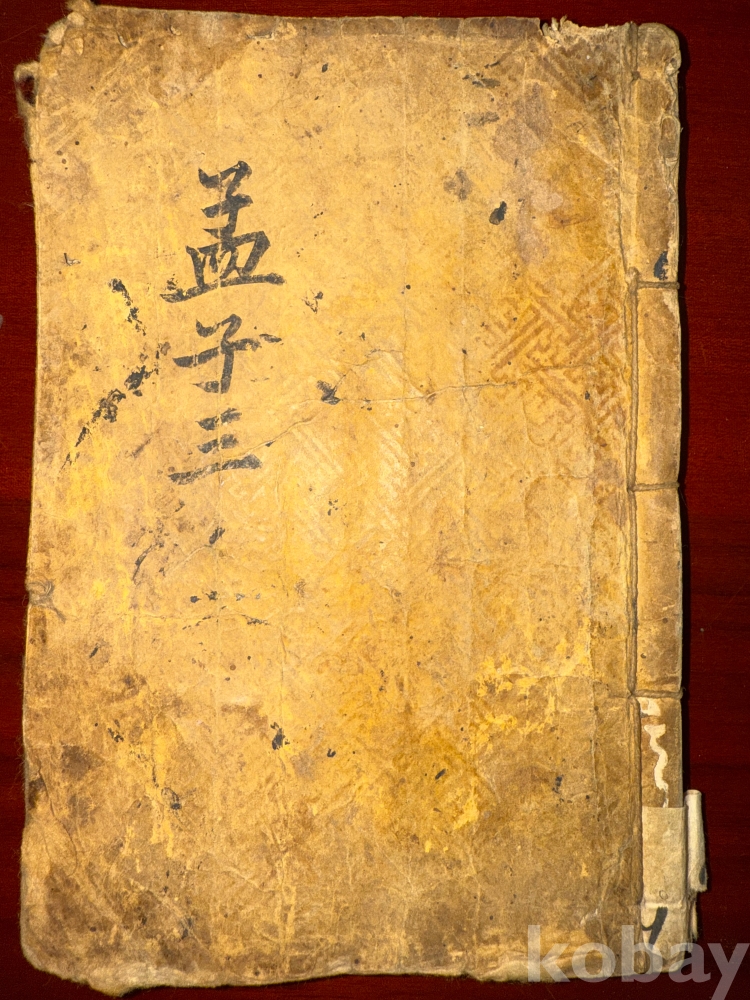 孟子三
kobay